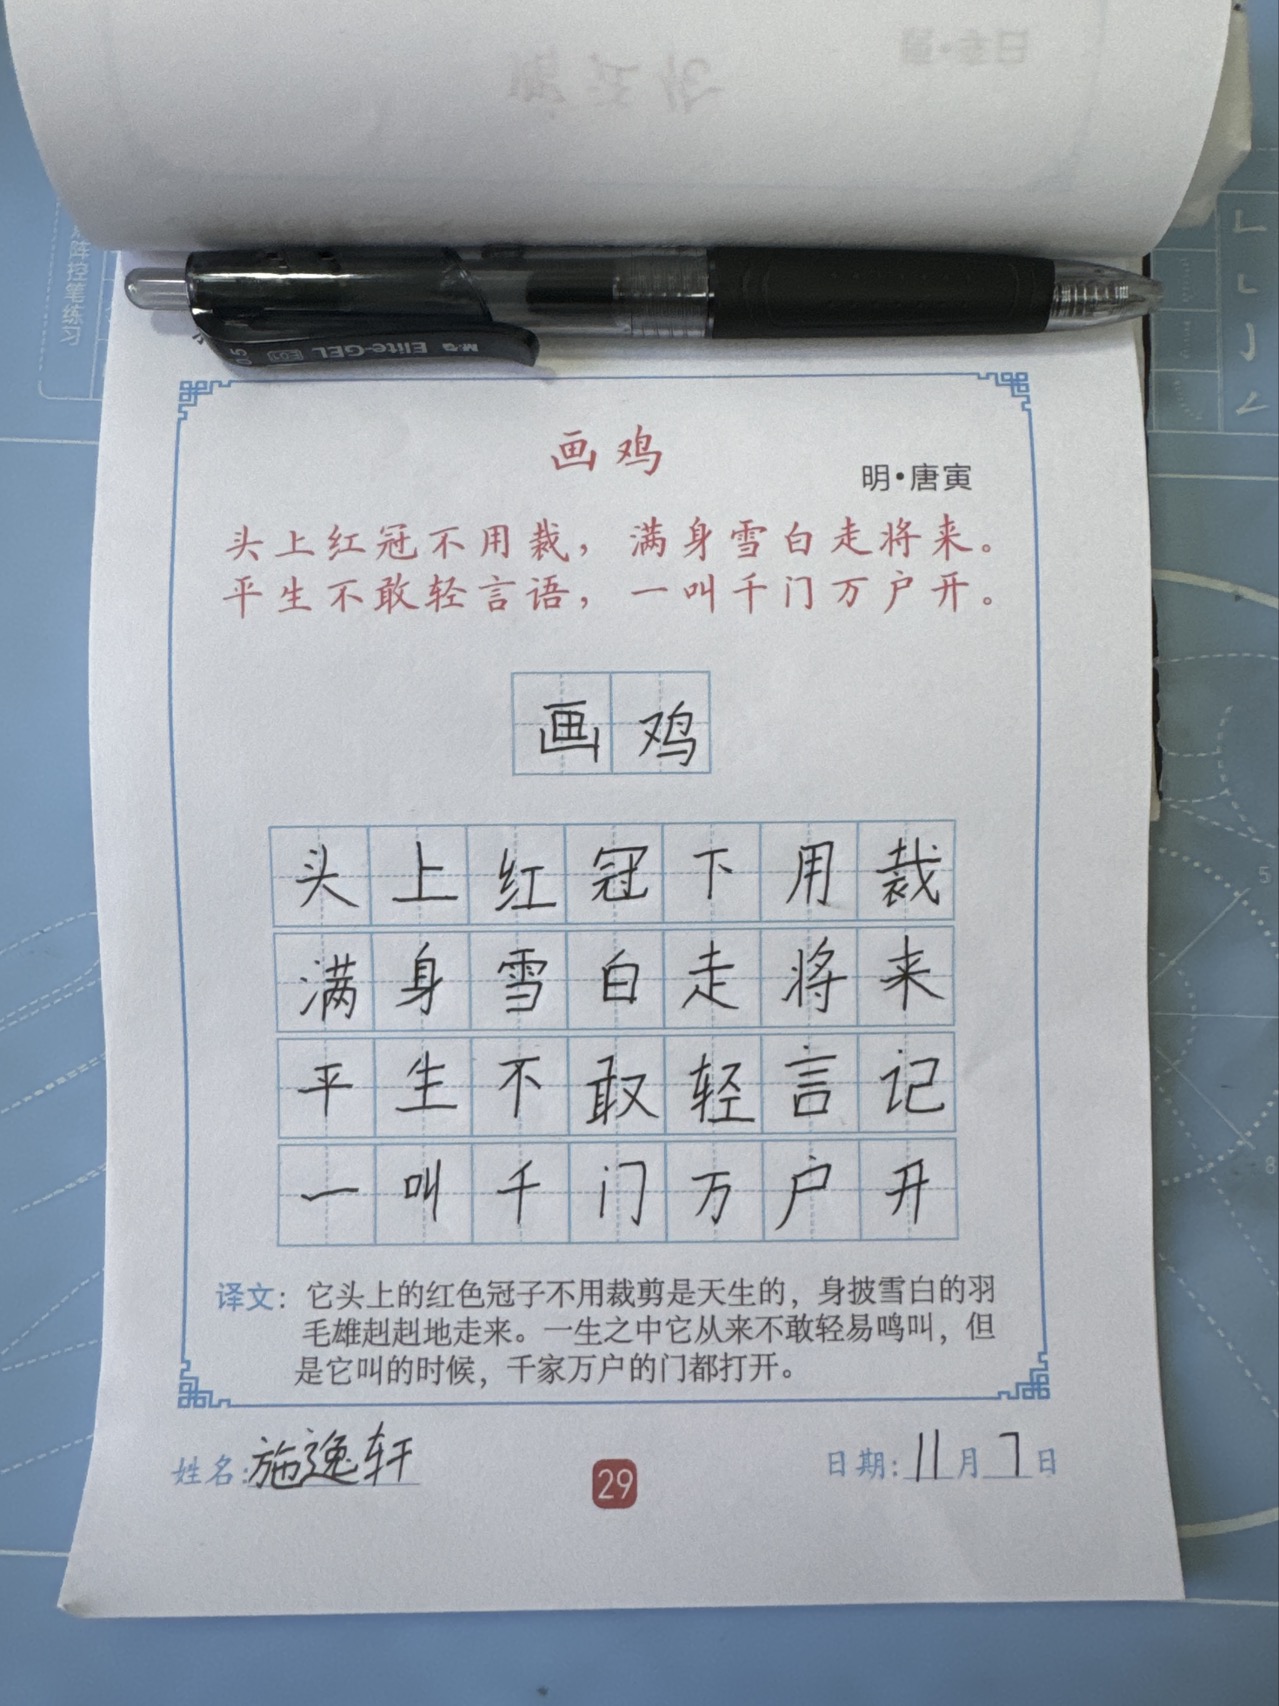 阵控笔练习
M&G Elite-GEL
0.5
画鸡
明·唐寅
头上红冠不用裁，满身雪白走将来。
平生不敢轻言语，一叫千门万户开。
画鸡
头上红冠下用裁
满身雪白走将来
平生不敢轻言记
一叫千门万户开
译文：它头上的红色冠子不用裁剪是天生的，身披雪白的羽
毛雄赳赳地走来。一生之中它从来不敢轻易鸣叫，但
是它叫的时候，千家万户的门都打开。
姓名:施逸轩
29
日期:11月7日